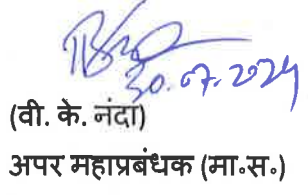 30.07.2024
(वी. के. नंदा)
अपर महाप्रबंधक (मा॰स॰)